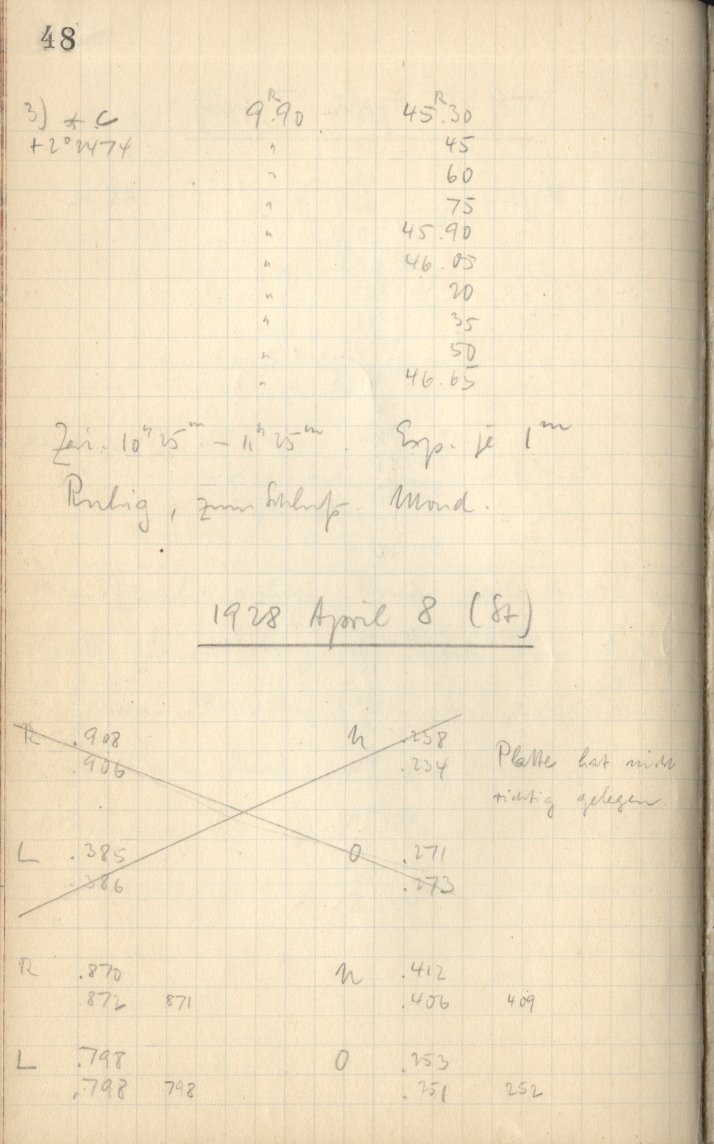 48
3) * C 9.R90 45.R30
+2°2474 " 45
" 60
" 75
" 45.90
" 46.05
" 20
" 35
" 50
" 46.65
Zeit. 10h 25m – 11h 25m. Exp. je 1m
Ruhig, zum Schluß Mond.
1928 April 8 (St)
R .908 U .258
.906 .234
Platte hat nicht
richtig gelegen.
L .385 O .271
.386 .273
R .870 U .412
872 871 .406 409
L .798 O .253
.798 798 .251 252